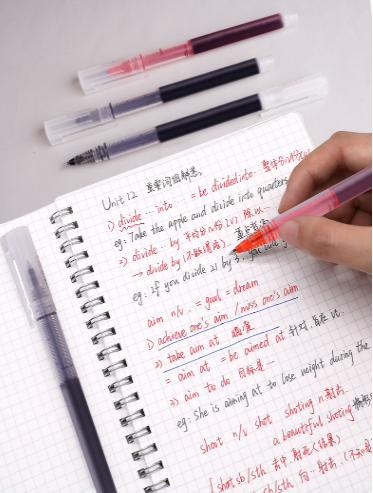 Unit 12 重要词组解意。
1) divide … into … = be divided into… 整体分成
eg: Take the apple and divide into quarters
2) divide … by 平均分几份 (v) 除以…
→ divide by (不能漏掉)
eg: If you divide 21 by 3, you
aim n/v. = goal = dream
1) achieve one's aim / miss one's aim
2) take aim at 瞄准
= aim at = be aimed at 针对,
3) aim to do 目标是…
eg: She is aiming at to lose weight during the
shoot n/v shot shoting n.射击.
a beautiful shoting
shoot sb/sth 击中.射死(结果)
sb/sth 向…射击.